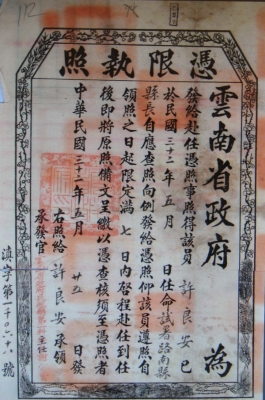 憑限執照
雲南省政府 為
發給赴任憑照事照得該員 許良安 已
於民國三十二年五月 日任命試署路南縣
縣長自應查照向例發給憑照仰該員遵照自
領照之日起限定滿 七 日內啓程赴任到任
後即將原照備文呈繳以憑查核須至憑照者
中華民國三十二年五月 廿五 日發
右照給 許良安 承領
承發官
主任
滇字第一千〇六十六號